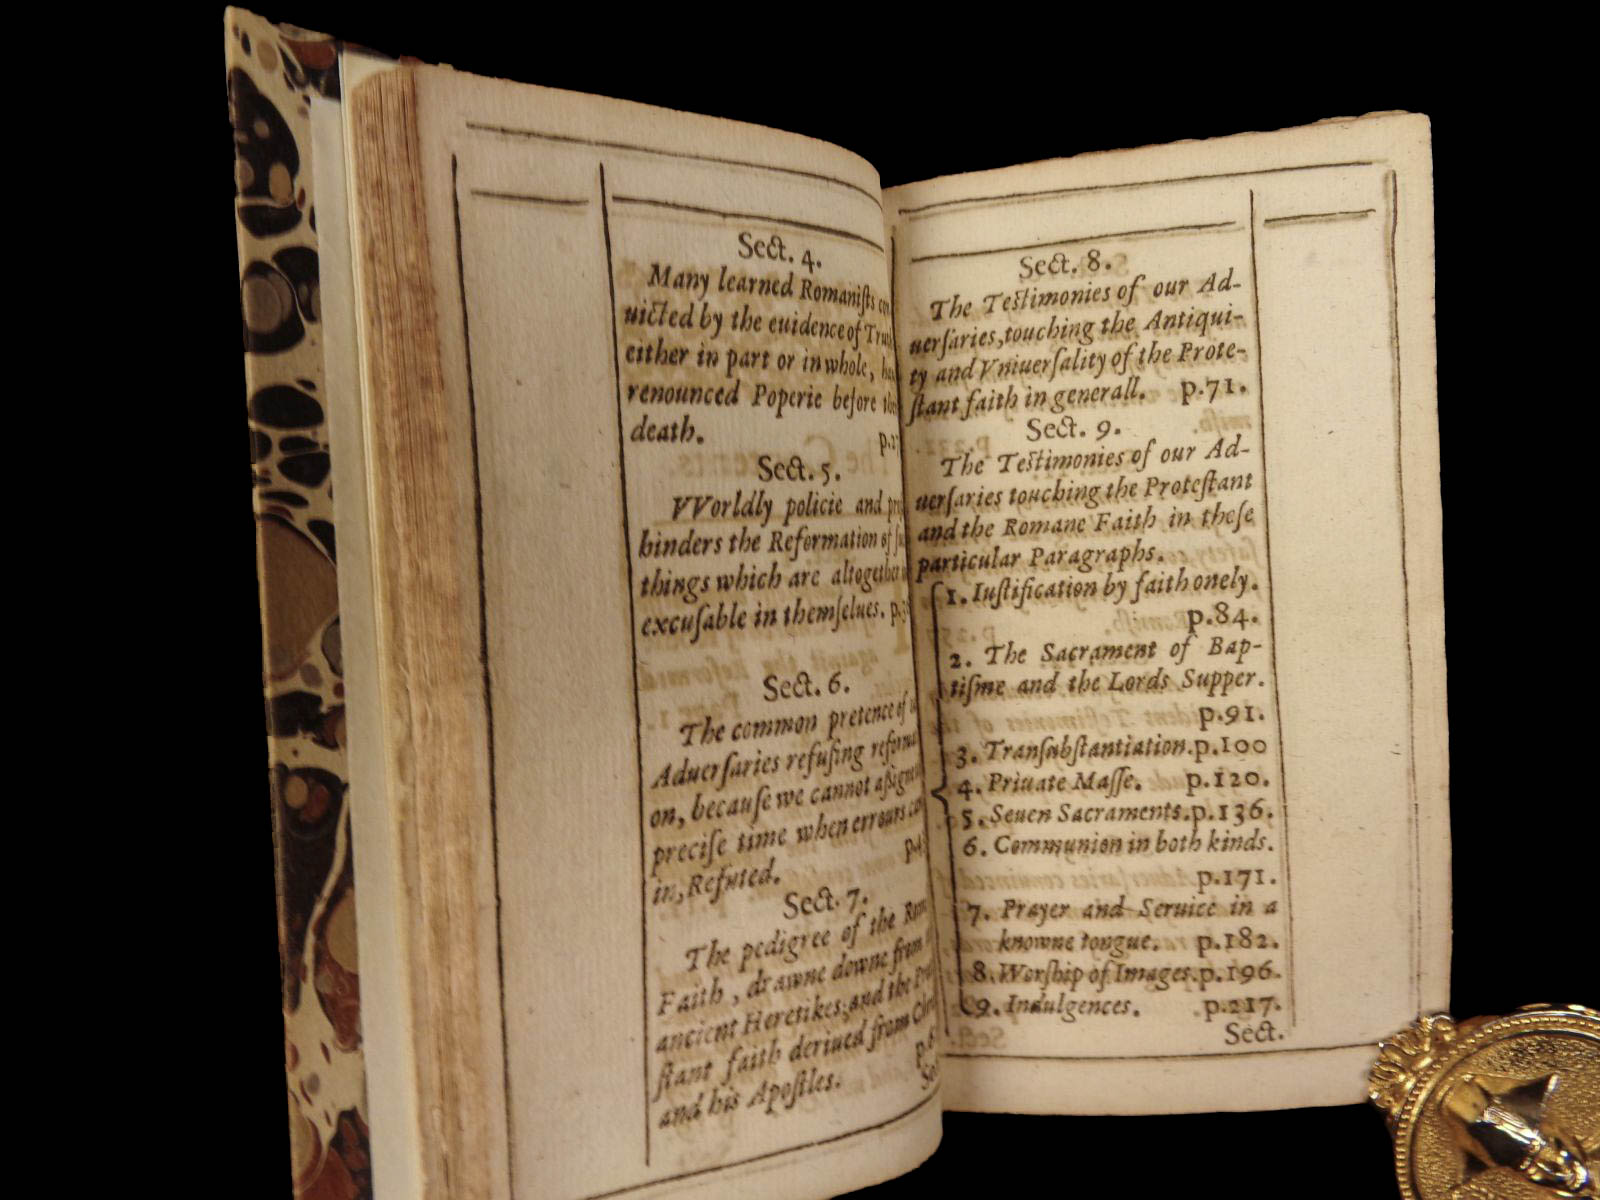 Sect. 4.
Many learned Romaniſts
uicted by the euidence of
either in part or in whole,
renounced Poperie before
death.
Sect. 5.
VVorldly policie and
hinders the Reformation of
things which are altogether
excuſable in themſelues.
Sect. 6.
The common pretence of
Aduerſaries refuſing
on, becauſe we cannot
preciſe time when errours
in, Refuted.
Sect. 7.
The pedigree of the
Faith, drawne downe from
ancient Heretikes; and the
ſtant faith deriued from
and his Apoſtles.
Sect. 8.
The Teſtimonies of our Ad-
uerſaries, touching the Antiqui-
ty and Vniuerſality of the Prote-
ſtant faith in generall. p.71.
Sect. 9.
The Teſtimonies of our Ad-
uerſaries touching the Proteſtant
and the Romane Faith in theſe
particular Paragraphs.
1. Iuſtification by faith onely.
p.84.
2. The Sacrament of Bap-
tiſme and the Lords Supper.
p.91.
3. Tranſubſtantiation. p.100
4. Priuate Maſſe. p.120.
5. Seuen Sacraments. p.136.
6. Communion in both kinds.
p.171.
7. Prayer and Seruice in a
knowne tongue. p.182.
8. Worſhip of Images. p.196.
9. Indulgences. p.217.
Sect.